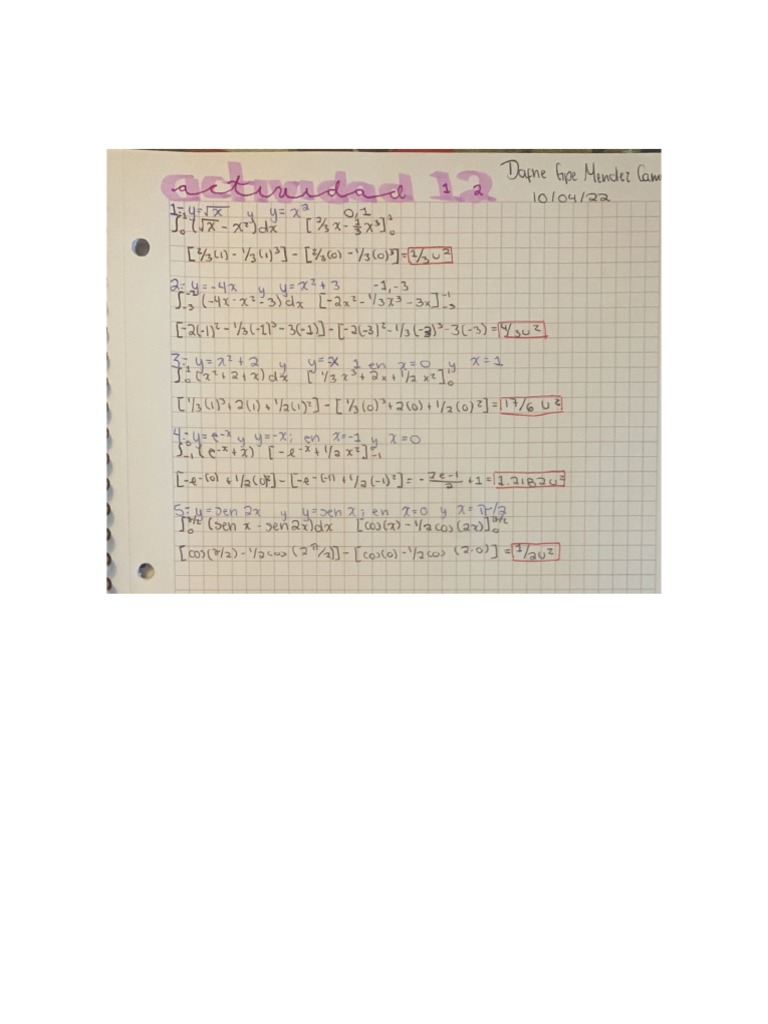 actividad 12
1 2
Dafne Gpe Mendez Cam
10/04/22
1- y=√x y y=x² 0,1
∫₀¹(√x - x²)dx [²/₃x - ⅓x³]₀¹
[²/₃(1) - ¹/₃(1)³] - [²/₃(0) - ¹/₃(0)³] = 1/3 u²
2- y=-4x y y=x²+3 -1,-3
∫₋₃⁻¹(-4x-x²-3)dx [-2x² - 1/3x³ - 3x]₋₃⁻¹
[-2(-1)² - 1/3(-1)³ - 3(-1)] - [-2(-3)² - 1/3(-3)³ - 3(-3) = 4/3u²
3- y=x²+2 y y=-x en x=0 y x=1
∫₀¹(x²+2+x)dx [1/3x³+2x+1/2x²]₀¹
[1/3(1)³+2(1)+1/2(1)²] - [1/3(0)³+2(0)+1/2(0)²] = 17/6 u²
4- y=e⁻ˣ y y=-x; en x=-1 y x=0
∫₋₁⁰(e⁻ˣ+x) [-e⁻ˣ+1/2x²]₋₁
[-e-(0)+1/2(0)²] - [-e-(-1)+1/2(-1)²] = - 2e-1/2 +1 = 1.2182u²
5- y=sen 2x y y=sen x; en x=0 y x=π/2
∫₀^π/2(sen x - sen 2x)dx [cos(x) - 1/2cos(2x)]₀^π/2
[cos(π/2) - 1/2cos(2π/2)] - [cos(0) - 1/2cos(2·0)] = 1/2u²